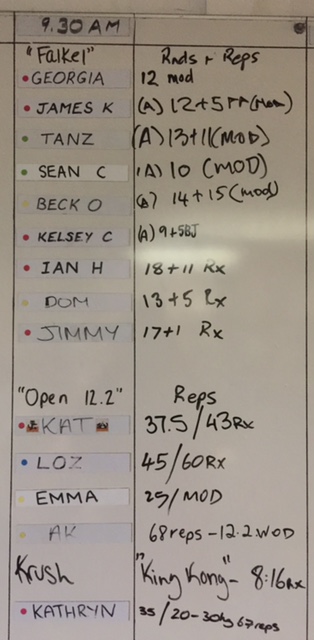 9.30 AM
"Falkel" Rnds + Reps
GEORGIA 12 mod
JAMES K (A) 12+5 (Mod)
TANZ (A) 13+11 (MOD)
SEAN C (A) 10 (MOD)
BECK O 14+15 (mod)
KELSEY C (A) 9+5BJ
IAN H 18+11 Rx
DOM 13+5 Rx
JIMMY 17+1 Rx
"Open 12.2" Reps
KAT 37.5/43Rx
LOZ 45/60Rx
EMMA 25/MOD
AK 68reps-12.2.WOD
Krush "King Kong"- 8:16Rx
KATHRYN 35/20-30kg 67reps